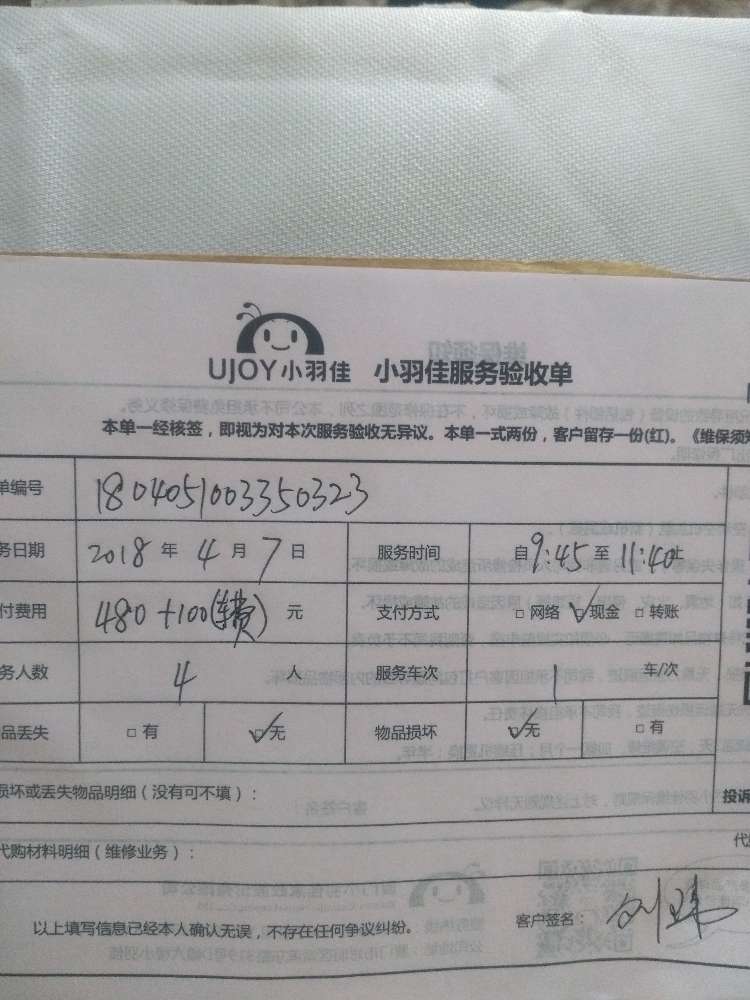 UJOY小羽佳 小羽佳服务验收单
本单一经核签，即视为对本次服务验收无异议。本单一式两份，客户留存一份(红)。《维保须知
单编号 1804051003350323
务日期 2018 年 4 月 7 日 服务时间 自 9:45 至 11:40 止
付费用 480+100(车费) 元 支付方式 □ 网络 ☑ 现金 □ 转账
务人数 4 人 服务车次 1 车/次
品丢失 □ 有 ☑ 无 物品损坏 ☑ 无 □ 有
损坏或丢失物品明细（没有可不填）： 投诉
代购材料明细（维修业务）：
以上填写信息已经本人确认无误，不存在任何争议纠纷。 客户签名：